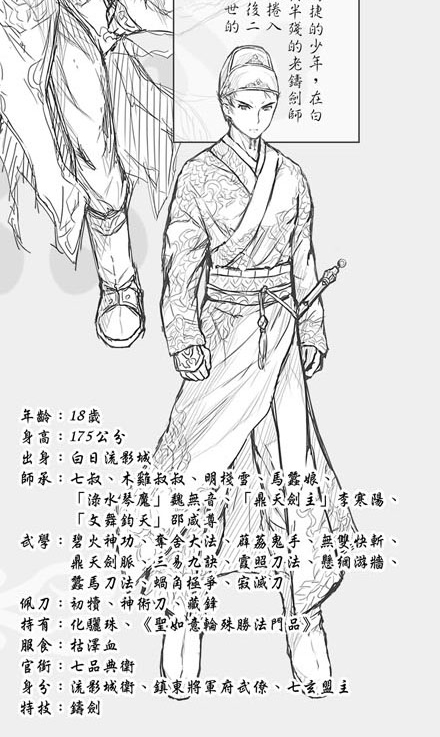 捷的少年，在白
捲入
半殘的老鑄劍師
後二
世的
年齡：18歲
身高：175公分
出身：白日流影城
師承：七叔、木雞叔叔、明棧雪、馬蠶娘、
「淥水琴魔」魏無音、「鼎天劍主」李寒陽、
「文舞鈞天」邵咸尊
武學：碧火神功、奪舍大法、薜荔鬼手、無雙快斬、
鼎天劍脈、三易九訣、霞照刀法、懸網游牆、
蠶馬刀法、蝸角極爭、寂滅刀
佩刀：初犢、神術刀、藏鋒
持有：化驪珠、《聖如意輪殊勝法門品》
服食：枯澤血
官銜：七品典衛
身分：流影城衛、鎮東將軍府武僚、七玄盟主
特技：鑄劍